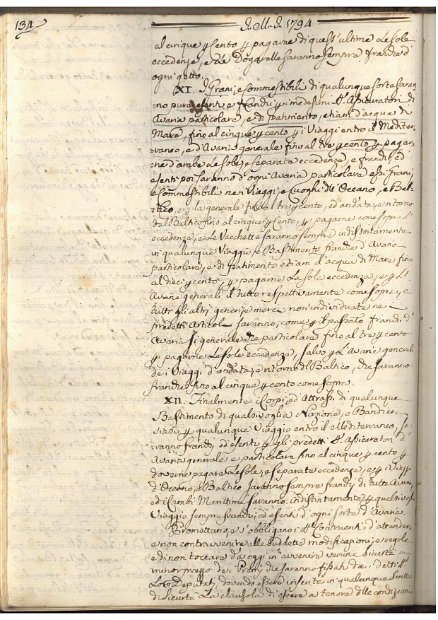 134
J. M. J. 1794
al cinque p cento, e pagarne di quest'ultime le sole
eccedenze, e le Doghe
ogni getto.
XI. I Grani, e commestibili di qualunque sorte saran-
no pure esenti, e franchi p i medesimi S.ri Assicuratori di
Avaria particolare, e di patimento, etiam d'acqua di
Mare, fino al cinque p cento, p i Viaggi entro il Mediter-
raneo, e d'Avarie generale fino al tre p cento, e pagar-
ne d'ambe le sole, e separate eccedenze, e franchi, ed
esenti poi saranno d'ogni Avaria particolare essi Grani,
e commestibili nei Viaggi, e luoghi di Oceano, e Bal-
tico, e p la generale fino al tre p cento, ed andata, e ritorno
dal Baltico fino al cinque p cento, e pagarne come sopra le
eccedenze, e le Vacchette saranno sempre indistintamente
in qualunque Viaggio, e Bastimento franche d'Avarie
particolari, e di patimento etiam d'acqua di Mare fino
al dieci p cento, e pagarne le sole eccedenze, e p le
Avarie generali il tutto rispettivamente come sopra, e
tutti gli altri generi, e merci non individuate ne
predetti Articoli saranno, come p il passato franchi d'
Avarie sì generali, che particolari fino al tre p cento
e pagarne le sole eccedenze, salvo p le Avarie generali
de i Viaggi d'andata, e ritorno di Baltico, che saranno
franchi fino al cinque p cento come sopra.
XII. Finalmente i Corpi, ed Attrassi di qualunque
Bastimento di qualsivoglia Nazione, e Bandiera
siasi, e p qualunque Viaggio entro il Mediterraneo, sa-
ranno franchi, ed esenti p gli predetti S.ri Assicuratori d'
Avarie generali, e particolari fino al cinque p cento, e
doverne pagare le sole, e separate eccedenze, e p i Viaggi
d'Oceano, e Baltico saranno sempre franchi di tutta Avaria
ed i Cambi Marittimi saranno indistintamente p qualsivoglia
Viaggio sempre franchi, ed esenti d'ogni sorte d'Avarie.
Promettono, e s'obbligano i S.ri Contraenti d'attendere,
e non contravvenire alle suddette modificazioni, e regole
e di non toccare da oggi in avvenire veruna sicurtà
minor prezzo de i Premj che saranno fissati da i detti S.ri
Loro Deputati, dovendo essere inserite in qualunque
di sicurtà la clausola di essere a tenore delle condizioni